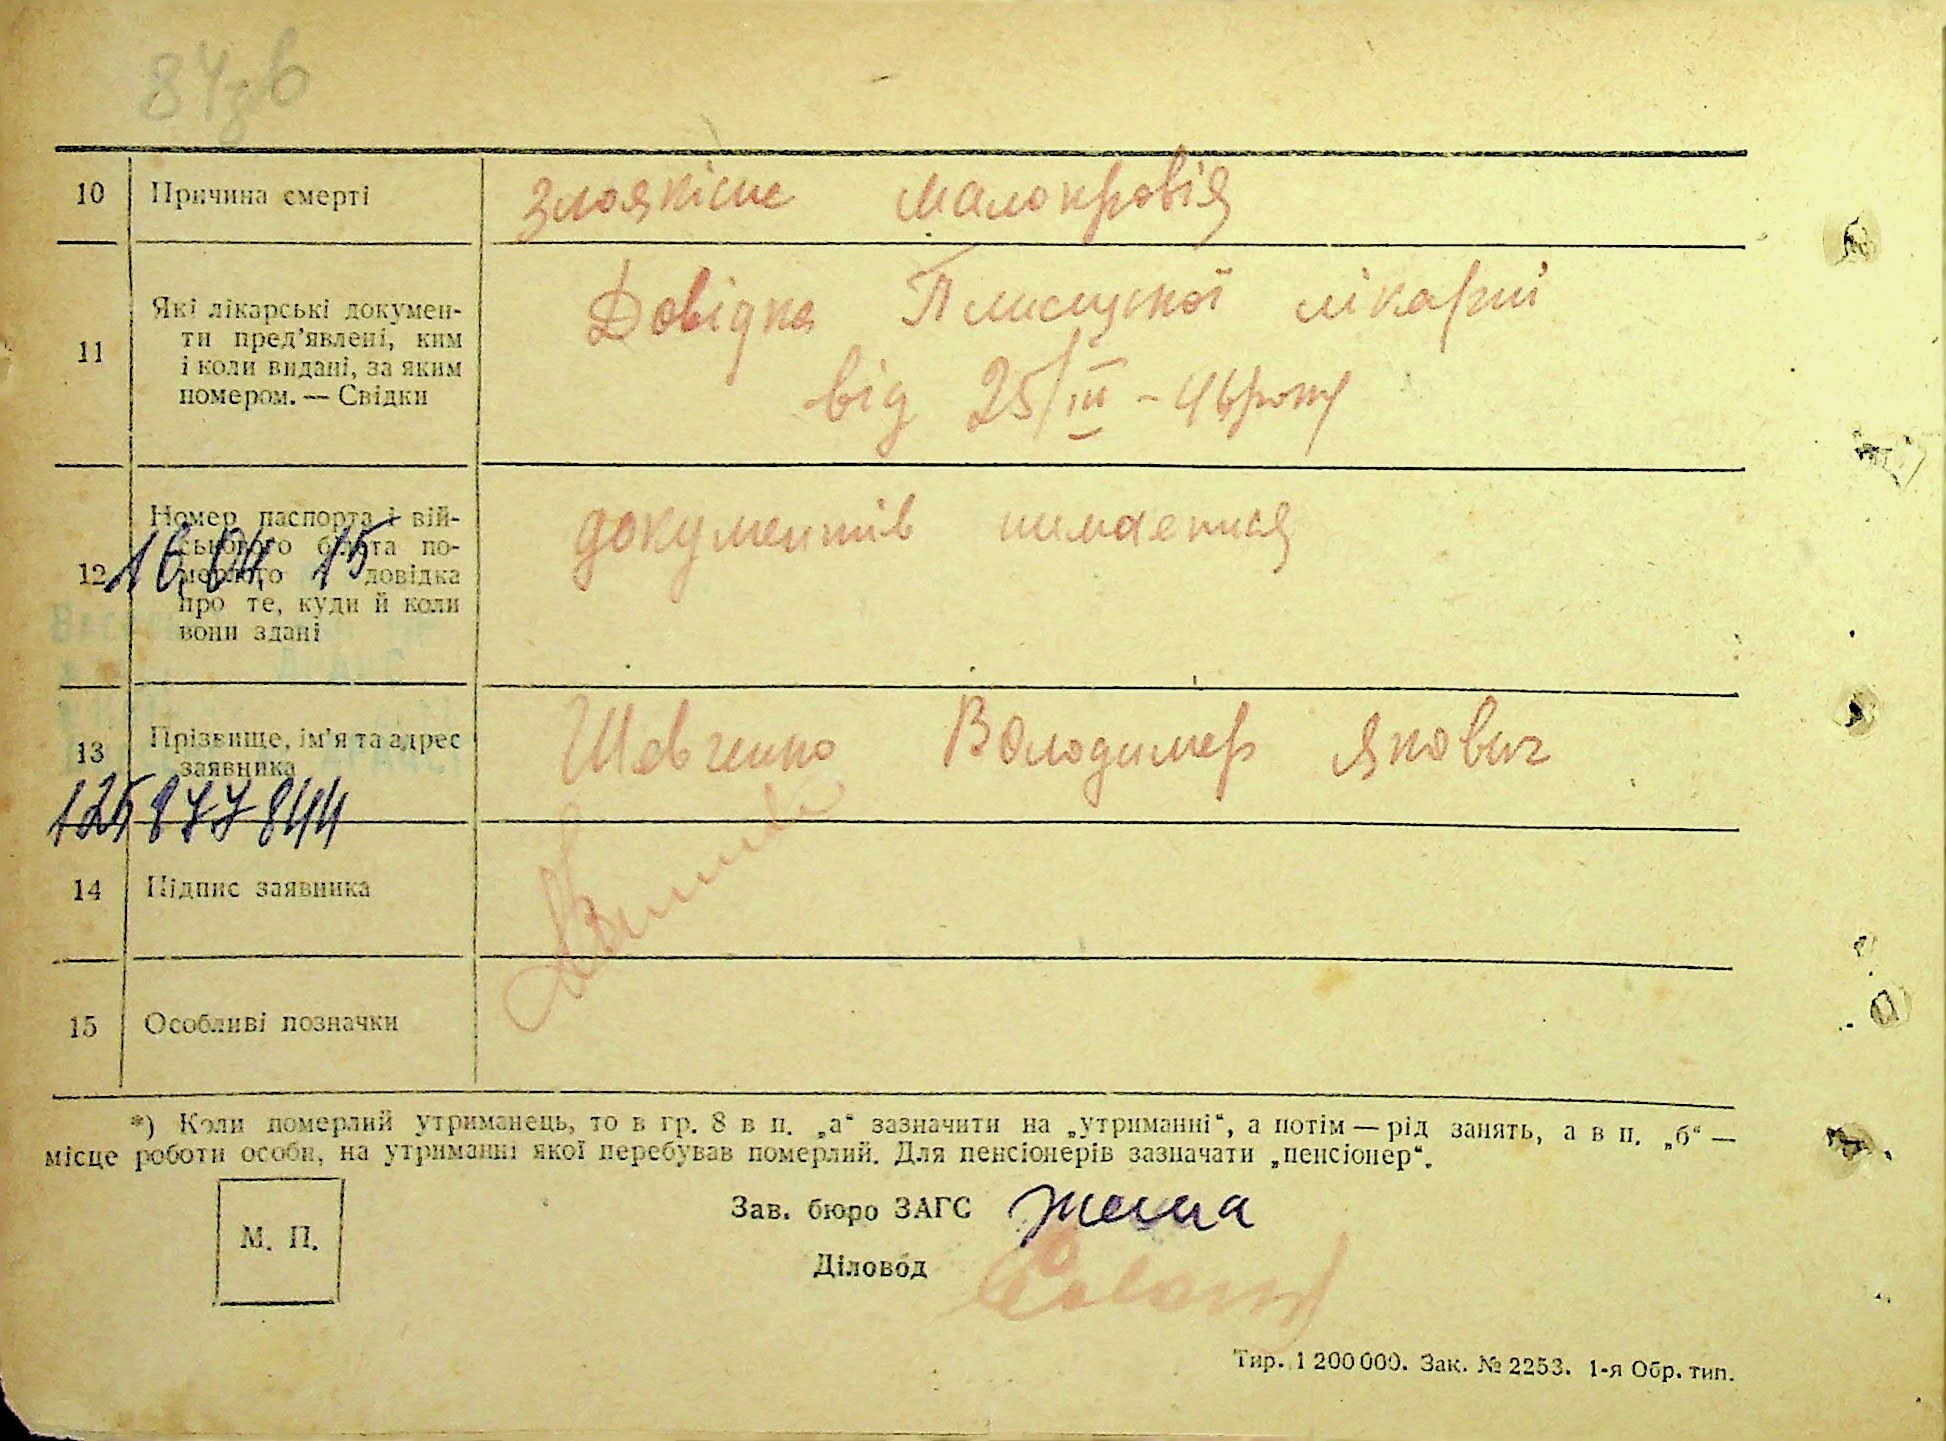 84зв
10 Причина смерті злоякісне малокровія
11 Які лікарські докумен-
ти пред’явлені, ким
і коли видані, за яким
номером. — Свідки
Довідка Плиськой лікарні
від 25/III - 46 року
12 Номер паспорта і вій-
ськового білета по-
мерлого довідка
про те, куди й коли
вони здані
документів немаеться
16,04 15
13 Прізвище, ім’я та адрес
заявника
Шевченко Володимер Якович
125 877 844
14 Підпис заявника
15 Особливі позначки
*) Коли померлий утриманець, то в гр. 8 в п. „а“ зазначити на „утриманні“, а потім — рід занять, а в п. „б“ —
місце роботи особи, на утриманні якої перебував померлий. Для пенсіонерів зазначати „пенсіонер“.
М. П.
Зав. бюро ЗАГС
Діловод
Тир. 1 200 000. Зак. № 2253. 1-я Обр. тип.